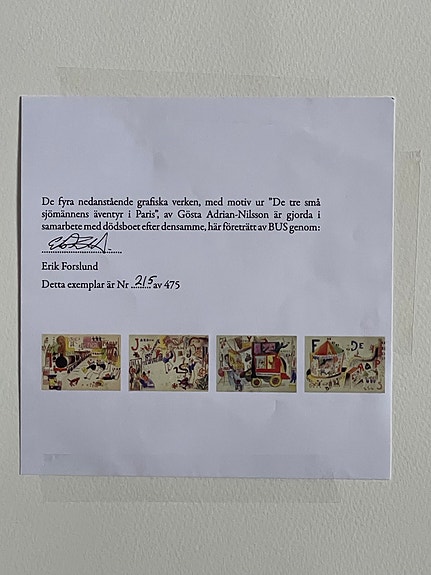 De fyra nedanstående grafiska verken, med motiv ur "De tre små
sjömännens äventyr i Paris", av Gösta Adrian-Nilsson är gjorda i
samarbete med dödsboet efter densamme, här företrätt av BUS genom:
Erik Forslund
Detta exemplar är Nr 215 av 475